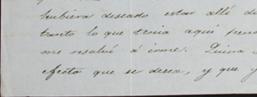 hubiera deseado estar allá de
tanto lo que tenia aquí
me resolví á irme.
efecto que se desea, y que y